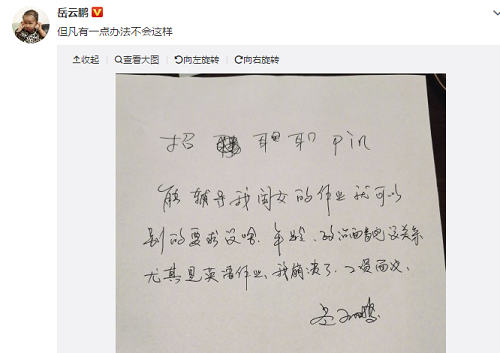 岳云鹏
但凡有一点办法不会这样
收起 查看大图 向左旋转 向右旋转
招 聘 职 Pin
能辅导我闺女的作业就可以
别的要求没啥. 年龄、政治面貌没关系
尤其是英语作业、我崩溃了. 工资面议、
岳云鹏